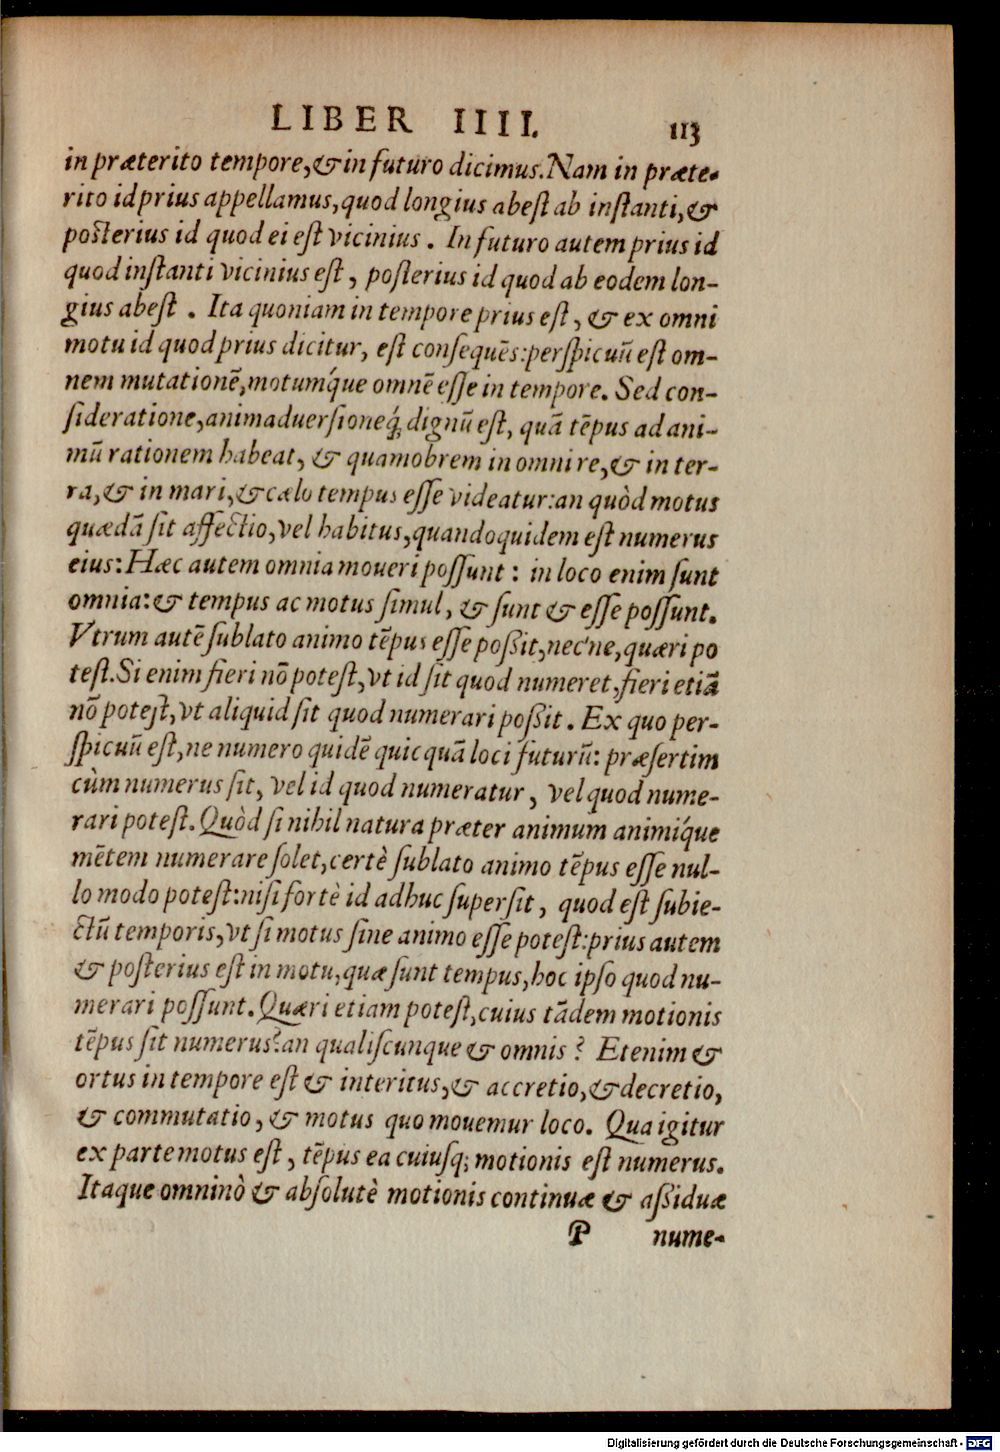 LIBER IIII. 113
in præterito tempore, & in futuro dicimus. Nam in præte-
rito id prius appellamus, quod longius abest ab instanti, &
posterius id quod ei est vicinius. In futuro autem prius id
quod instanti vicinius est, posterius id quod ab eodem lon-
gius abest. Ita quoniam in tempore prius est, & ex omni
motu id quod prius dicitur, est consequēs: perspicuū est om-
nem mutationē, motumq́ue omnē esse in tempore. Sed con-
sideratione, animaduersioneq́; dignū est, quā tēpus ad ani-
mū rationem habeat, & quamobrem in omni re, & in ter-
ra, & in mari, & cælo tempus esse videatur: an quòd motus
quædā sit affectio, vel habitus, quandoquidem est numerus
eius: Hæc autem omnia moueri possunt: in loco enim sunt
omnia: & tempus ac motus simul, & sunt & esse possunt.
Vtrum autē sublato animo tēpus esse poßit, nec'ne, quæri po
test. Si enim fieri nō potest, vt id sit quod numeret, fieri etiā
nō potest, vt aliquid sit quod numerari poßit. Ex quo per-
spicuū est, ne numero quidē quicquā loci futurū: præsertim
cùm numerus sit, vel id quod numeratur, vel quod nume-
rari potest. Quòd si nihil natura præter animum animiq́ue
mētem numerare solet, certè sublato animo tēpus esse nul-
lo modo potest: nisi fortè id adhuc supersit, quod est subie-
ctū temporis, vt si motus sine animo esse potest: prius autem
& posterius est in motu, quæ sunt tempus, hoc ipso quod nu-
merari possunt. Quæri etiam potest, cuius tādem motionis
tēpus sit numerus? an qualiscunque & omnis? Etenim &
ortus in tempore est & interitus, & accretio, & decretio,
& commutatio, & motus quo mouemur loco. Qua igitur
ex parte motus est, tēpus ea cuiusq; motionis est numerus.
Itaque omninò & absolutè motionis continuæ & aßiduæ
P nume-
Digitalisierung gefördert durch die Deutsche Forschungsgemeinschaft - DFG